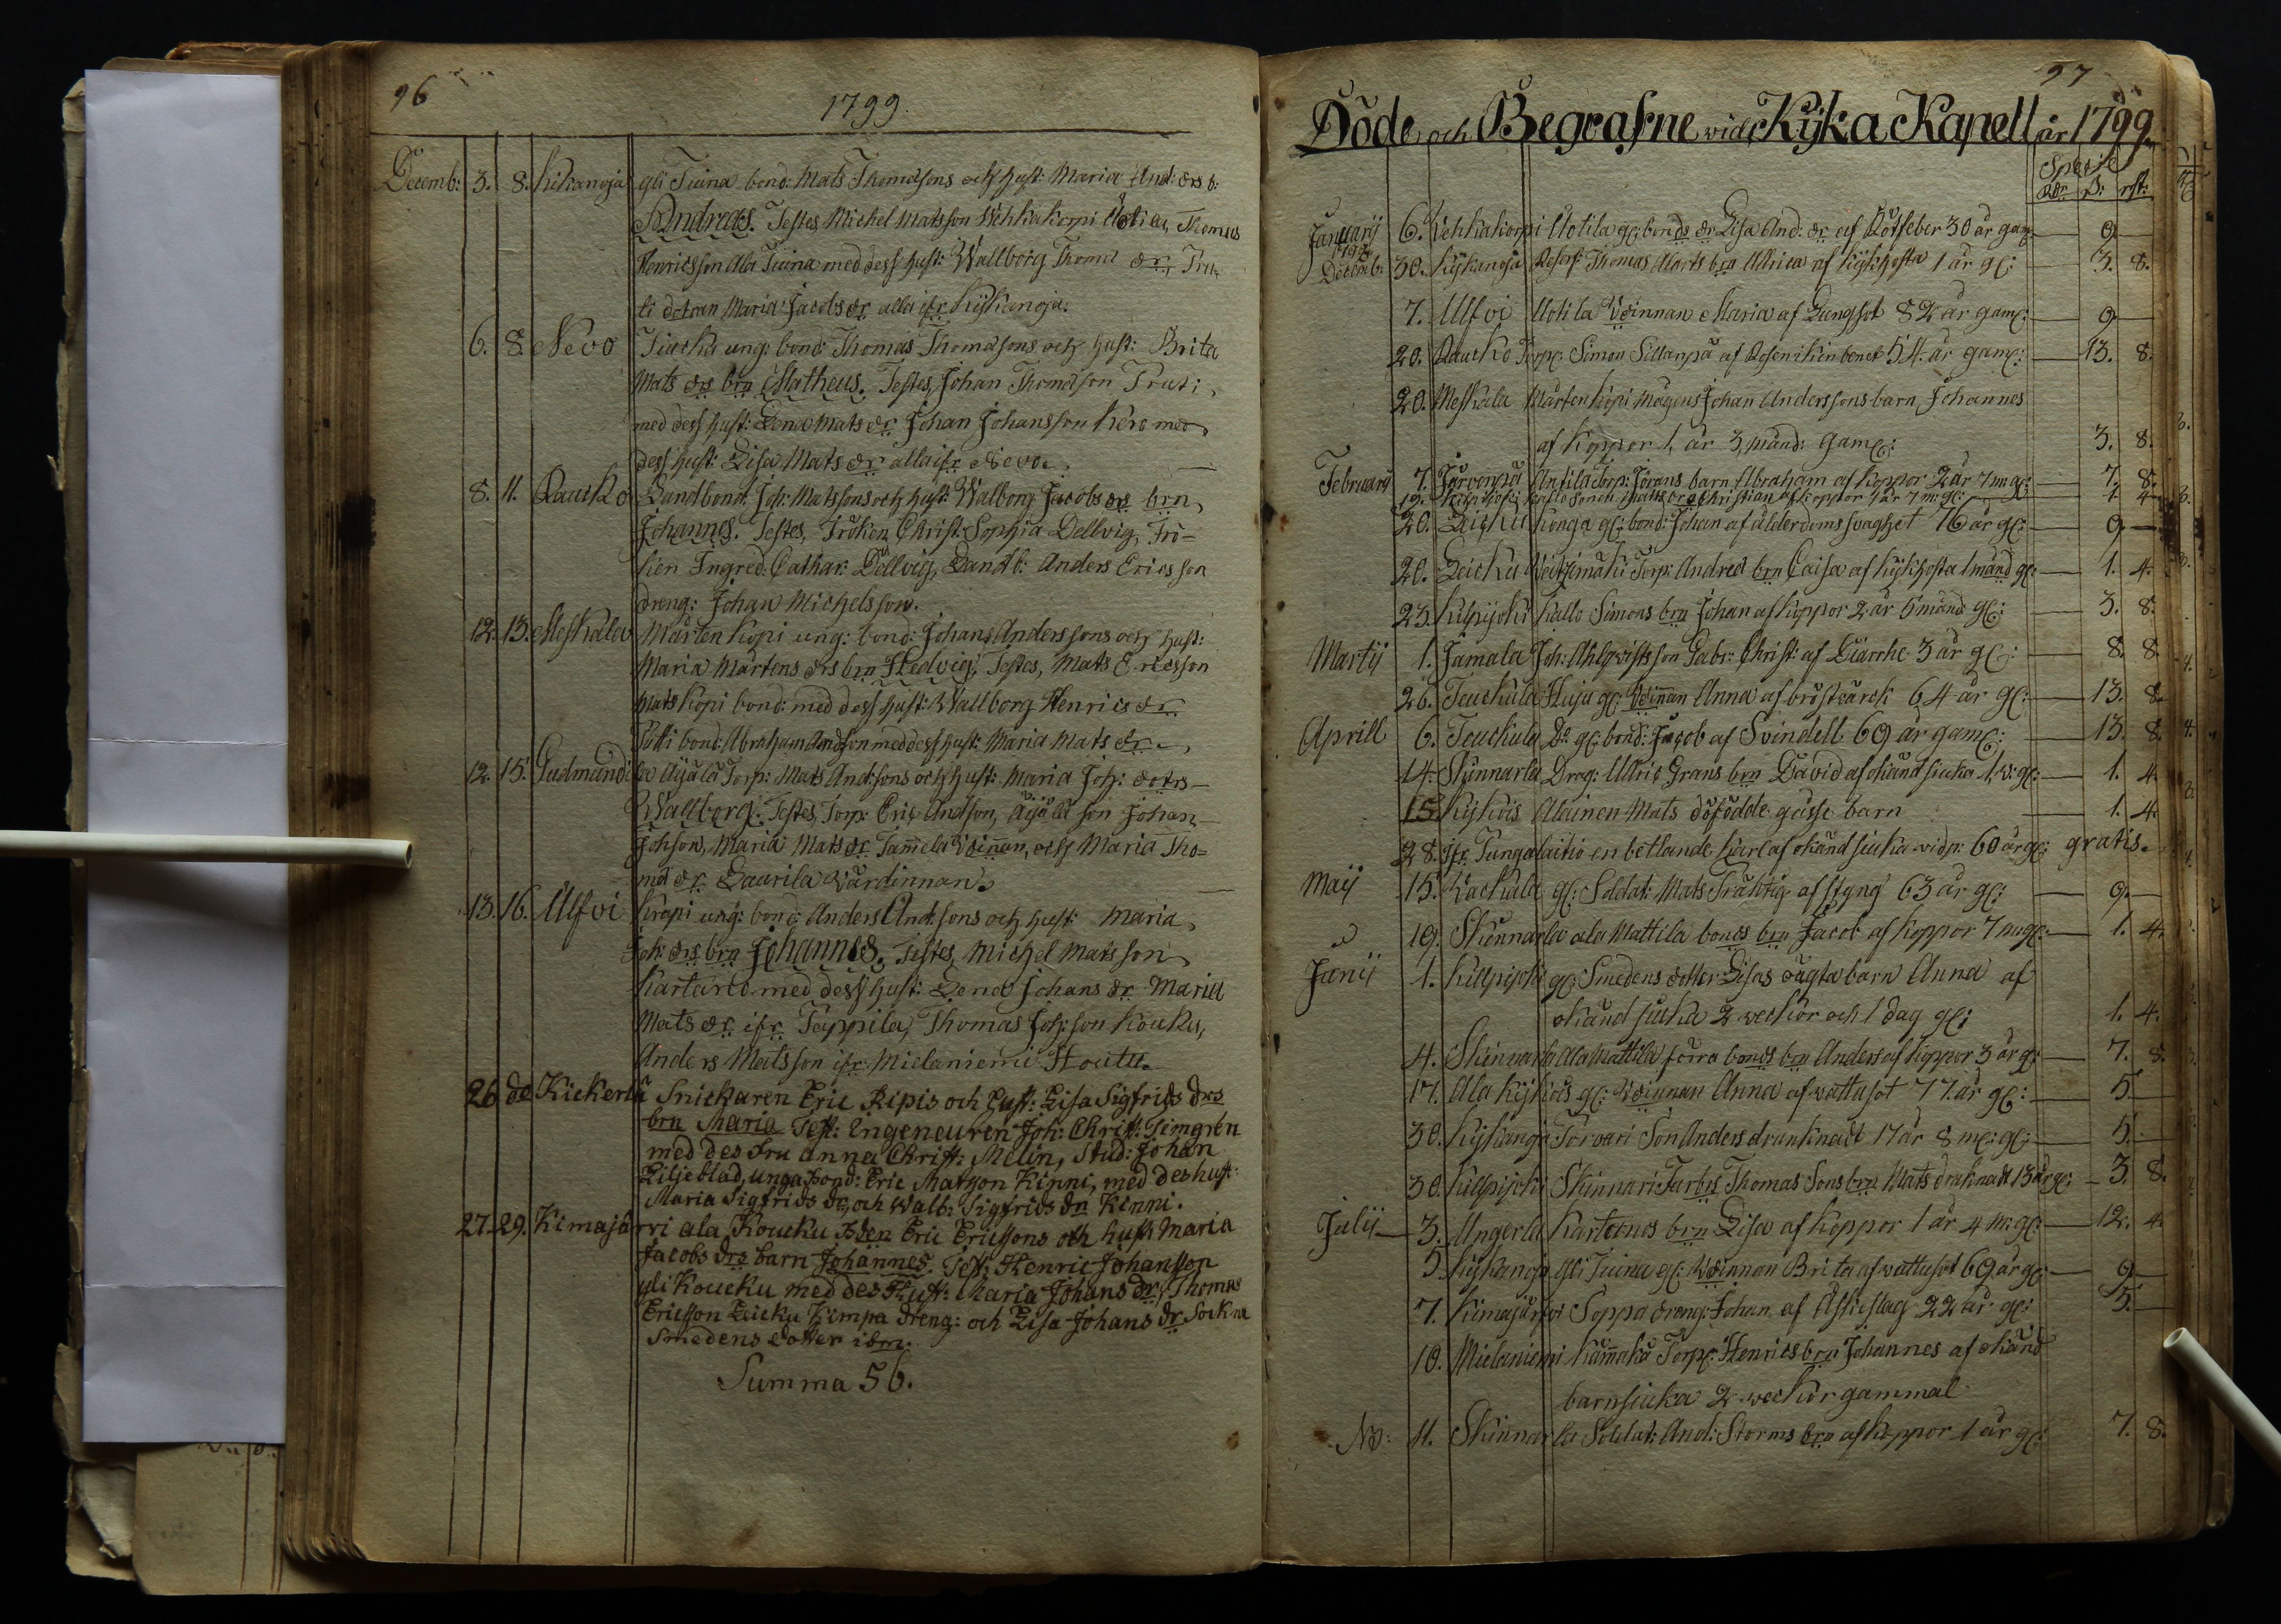 96
1799.
Decemb: 3. 8. Kikanoja yli Tuina bond: Mats Thomæsons och hust: Maria And: drs b:
Andreas. Testes, Michel Matsson Vehkakorpi Uotila, Thomas
Henricsson Ala Tuina med dess hust: Wallborg Thomæ dr,
dotran Maria Jacobs dr alla ifr. Kyskanoja.
6. 8. Nevo ung: bond: Thomas Thomæsons och hust: Brita
Mats drs brn Matheus. Testes, Johan Thomæson Pruti
med dess hust: Lena Mats dr Johan Johansson Kero med
dess hust: Lisa Mats dr alla ifr Nevo.
8. 11. Raucko Landbond: Joh: Matssons och hust: Walborg Jacobs drs brn
Johannes. Testes, Fröken Christ: Sophia Dellvig, Frö=
ken Ingred: Cathar: Dellvig, Landb: Anders Ericsson
dreng: Johan Michelsson.
12. 13. Meskala Mårten Kopi ung: bond: Johans Anderssons och hust:
Maria Mårtens drs brn Hedvig, Testes, Mats Ericsson
Mats Kopi bond: med dess hust: Wallborg Henrics dr
bond: Abraham Andson med dess hust: Maria Mats dr
12. 15. Gudmundila Äijälä Torp: Mats And:sons och hust: Maria Joh: dotrs
Wallborg. Testes, Torp: Eric Andson, Äijälä son Johan
Johson, Maria Mats dr Tam̄ela Vdinnan, och Maria Tho=
mæ dr Laurila Wärdinnan.
13. 16. Ulfvi Krapi ung: bond: Anders Andsons och hust: Maria
Joh: drs brn Johannes. Testes, Michel Matsson
Kartano med dess hust: Lena Johans dr Maria
Mats dr ifr Tappila, Thomas Joh:son Koucku,
Anders Matsson ifr Mielaniemi Houtu.
26 do Kickerlä Snickaren Eric Ripis och hust: Lisa Sigfrids drs
brn Maria Test: Engeneuren Joh: Christ: Timgren
med des Fru Anna Christ: Melin, Stud: Johan
Liljeblad, unga bond: Eric Matsson Kinni, med des hust:
Maria Sigfrids dr, och Walb: Sigfrids dr Kinni.
27. 29. Kimajärvi ala Koucku Bden Eric Ericssons och hust: Maria
Jacobs drs barn Johannes. Test: Henric Johansson
yli Koucku med des Hust: Maria Johans dr, Thomas
Ericsson Leicku Kimpa dreng: och Lisa Johans dr Sockne
Smedens dotter ibm.
Summa 56.
97
Döde och Begrafne wid Kyka Kapell år 1799.
Specie
Rdr ß: rst:
Januarij 6. Vehkakorpi Uotila gl: bonds dr Lisa And: dr af Rötfeber 30 år gam 9
1798 Decemb: 30. Kykanoja Thomas Marts brn Ulrica af Kijkhosta 1 år gl: 3. 8.
7. Ulfvi Uotila Vdinnan Maria af Lungsot 82 år gam: 9
20. Raucko Torp: Simon Sillanpä af Rosen i kinbenet 54. år gam: 13. 8.
20. Meskala Mårten Kopi Mågens Johan Anderssons barn, Johannes
af koppor 1, år 3 månd: gam: 3. 8.
Februarij 7. Järvenpä Anttila torp: Jörans barn Abraham af koppor 2 år 7 m: gl: 7. 8.
19. Kilpijoki Kallo Matts brn Christian af koppor 1 år 7 m: gl: 1 4
20. Leicku Konga gl: bond: Johan af ålderdoms svaghet 76 år gl: 9
20. Leicku Veitzimäki Torp: Andreæ brn Caisa af kijkhosta 1 månd gl: 1. 4.
23. Kilpijoki Kallo Simons brn Johan af koppor 2 år 6 månd gl: 3. 8.
Martij 1. Jamala Joh: Ahlqvists son Gabr: Christ: af Diarrhe 3 år gl: 8. 8
26. Teuckula Huju gl: Vdinnan Anna af bröstvärck 64 år gl: 13. 8.
Aprill 6. Teuckula Do gl: bond: Jacob af Svindell 69 år gaml: 13. 8.
14. Skinnarla Drag: Ulric Grans brn David af okänd siuka 1. v: gl: 1. 4
15. Kyskois Alainen Mats döfödde gåsse barn 1. 4.
28. ifr. Tungalaitio en betlande karl af okänd siuka vidp: 60 år gl: gratis.
Maij 15. Vackula gl: Soldat: Mats Träktig af styng 63 år gl: 9
19. Skinnarla ala Mattila bonds brn Jacob af koppor 7 m gl: 1. 4.
Junij 1. Killpijoki gl: Smedens dotter Lisas oägta barn Anna af
okänd siuka 2 weckor och 1 dag gl: 1. 4.
4. Skinnarla Ala Mattila förra bonds brn Anders af koppor 3 år gl: 7. 8.
17. Ala Kyskois gl: Vdinnan Anna af wattusot 77 år gl: 5.
30. Kyskanoja Torvari Son Anders drunknadt 17 år 8 m: gl: 5.
30. Killpijoki Skinnari Thomas Sons brn Mats druknadt 13 år gl: 3. 8.
Julij 3. Ungerla Kartanos brn Lisa af koppor 1 år 4 m: gl: 12. 4
5. Kyskanoja yli Tuina gl: Vdinnan Brita af wattusot 69 år gl: 9
7. Kimajärfvi Soppa dreng: Johan af Åskeslag 22 år gl: 5.
10. Mielaniemi Kämmäkä Torp: Henrics brn Johannes af okänd
barnsiuka 2 weckor gammal
11. Skinnarla Soldat: And: Storms brn af koppor 1 år gl: 7. 8.